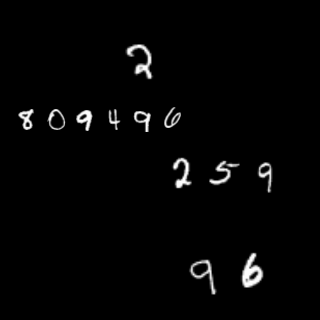 2
8 0 9 4 9 6
2 5 9
9 6